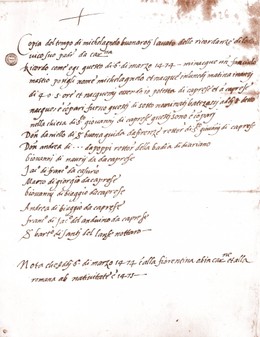 Copia del tempo di michelagnolo buonaroti levato delle ricordanze di lodo
vico suo pad. da car.ne
Ricordo come ogi questo dì 6 di marzo 1474 minacque un fanciullo
mastio posigli nome michelagnolo et nacque in lunedì matina inanzi
dì 4 o 5 ore et nacquemi essendo io potestà di caprese et a caprese
nacque e i parì furno questi di sotto nominati battezossi addì 8 detto
nella chiesa di S giovanni di caprese questi sono e i conpari
Don daniello di S buona guida da firenze rettor di S giovanni di caprese
Don andrea di da poppi rettore della badia di dariano
Giovanni di nanni da caprese
Jac. di franc. da casurio
Marco di giorgio da caprese
Giovanni di biaggio da caprese
Andrea di biaggio da caprese
Franc. di Jac. del anduino da caprese
S bart. di santi del lanse nottaro
Nota che addì 6 di marzo 1474 è alla fiorentina ab incar.ne et alla
romana ab nativitate è 1475